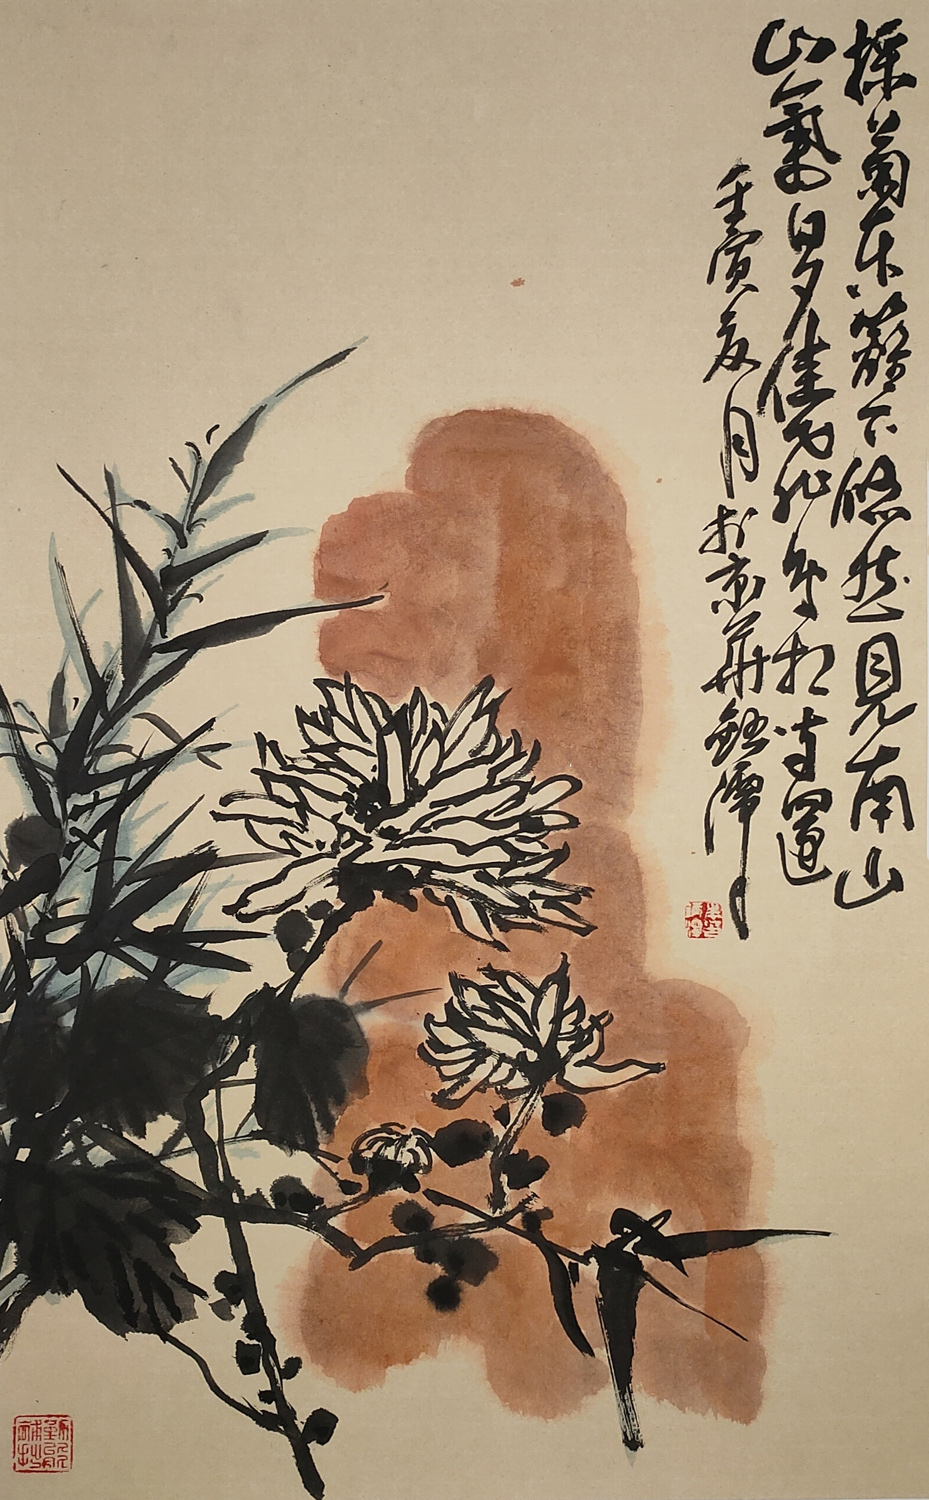 採菊东籬下悠然見南山
山氣日夕佳飛鳥相與還
壬寅夏月於京華